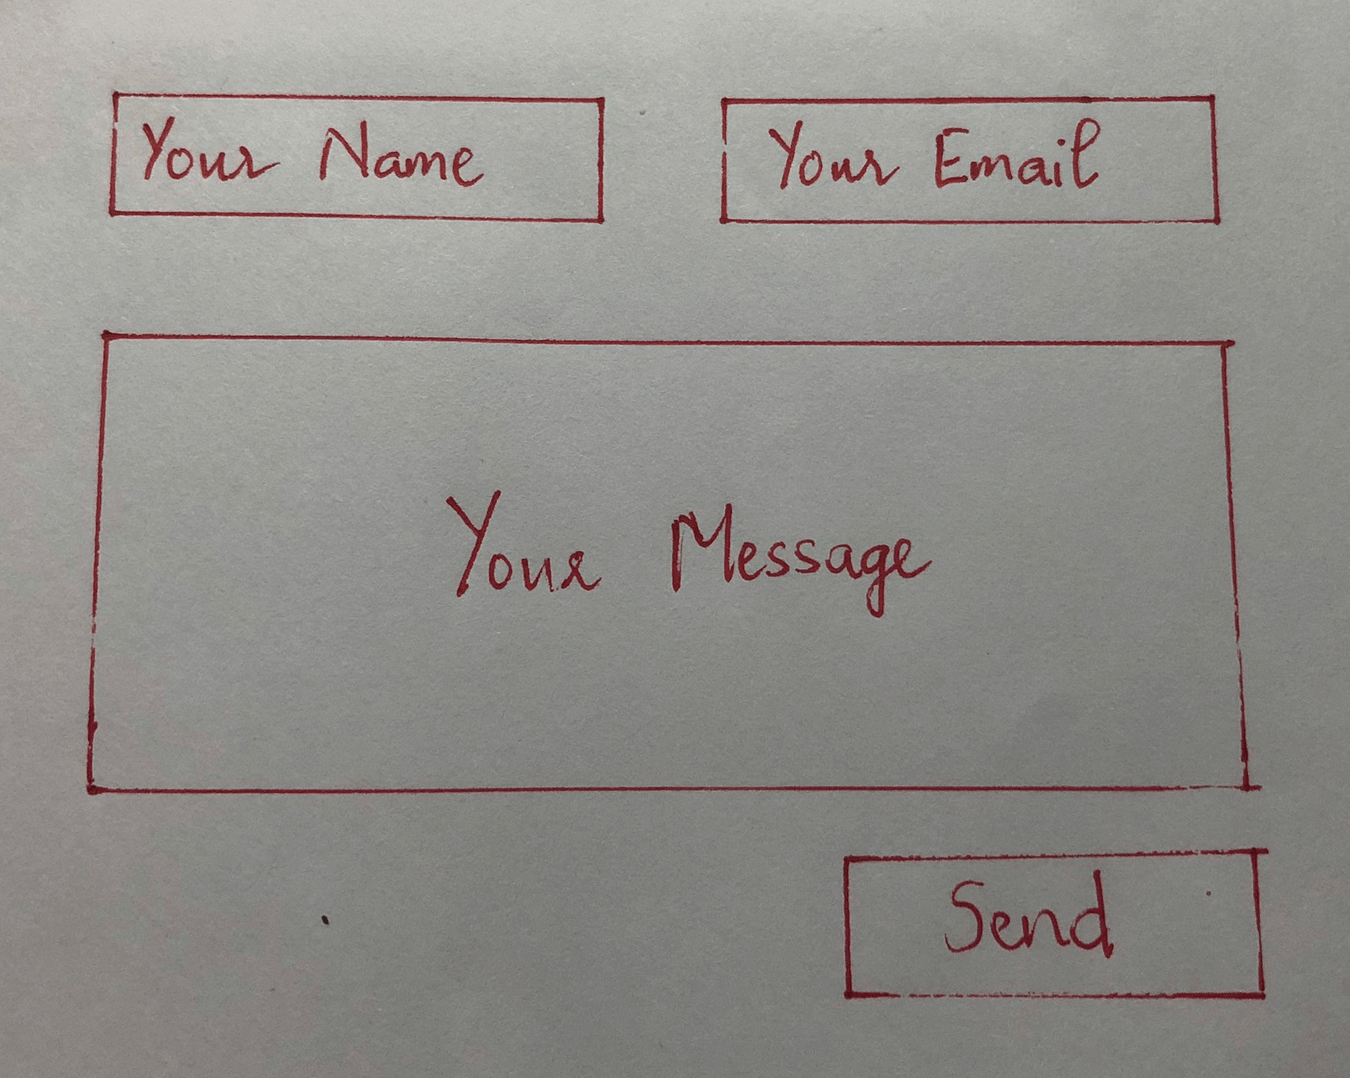 Your Name
Your Email
Your Message
Send